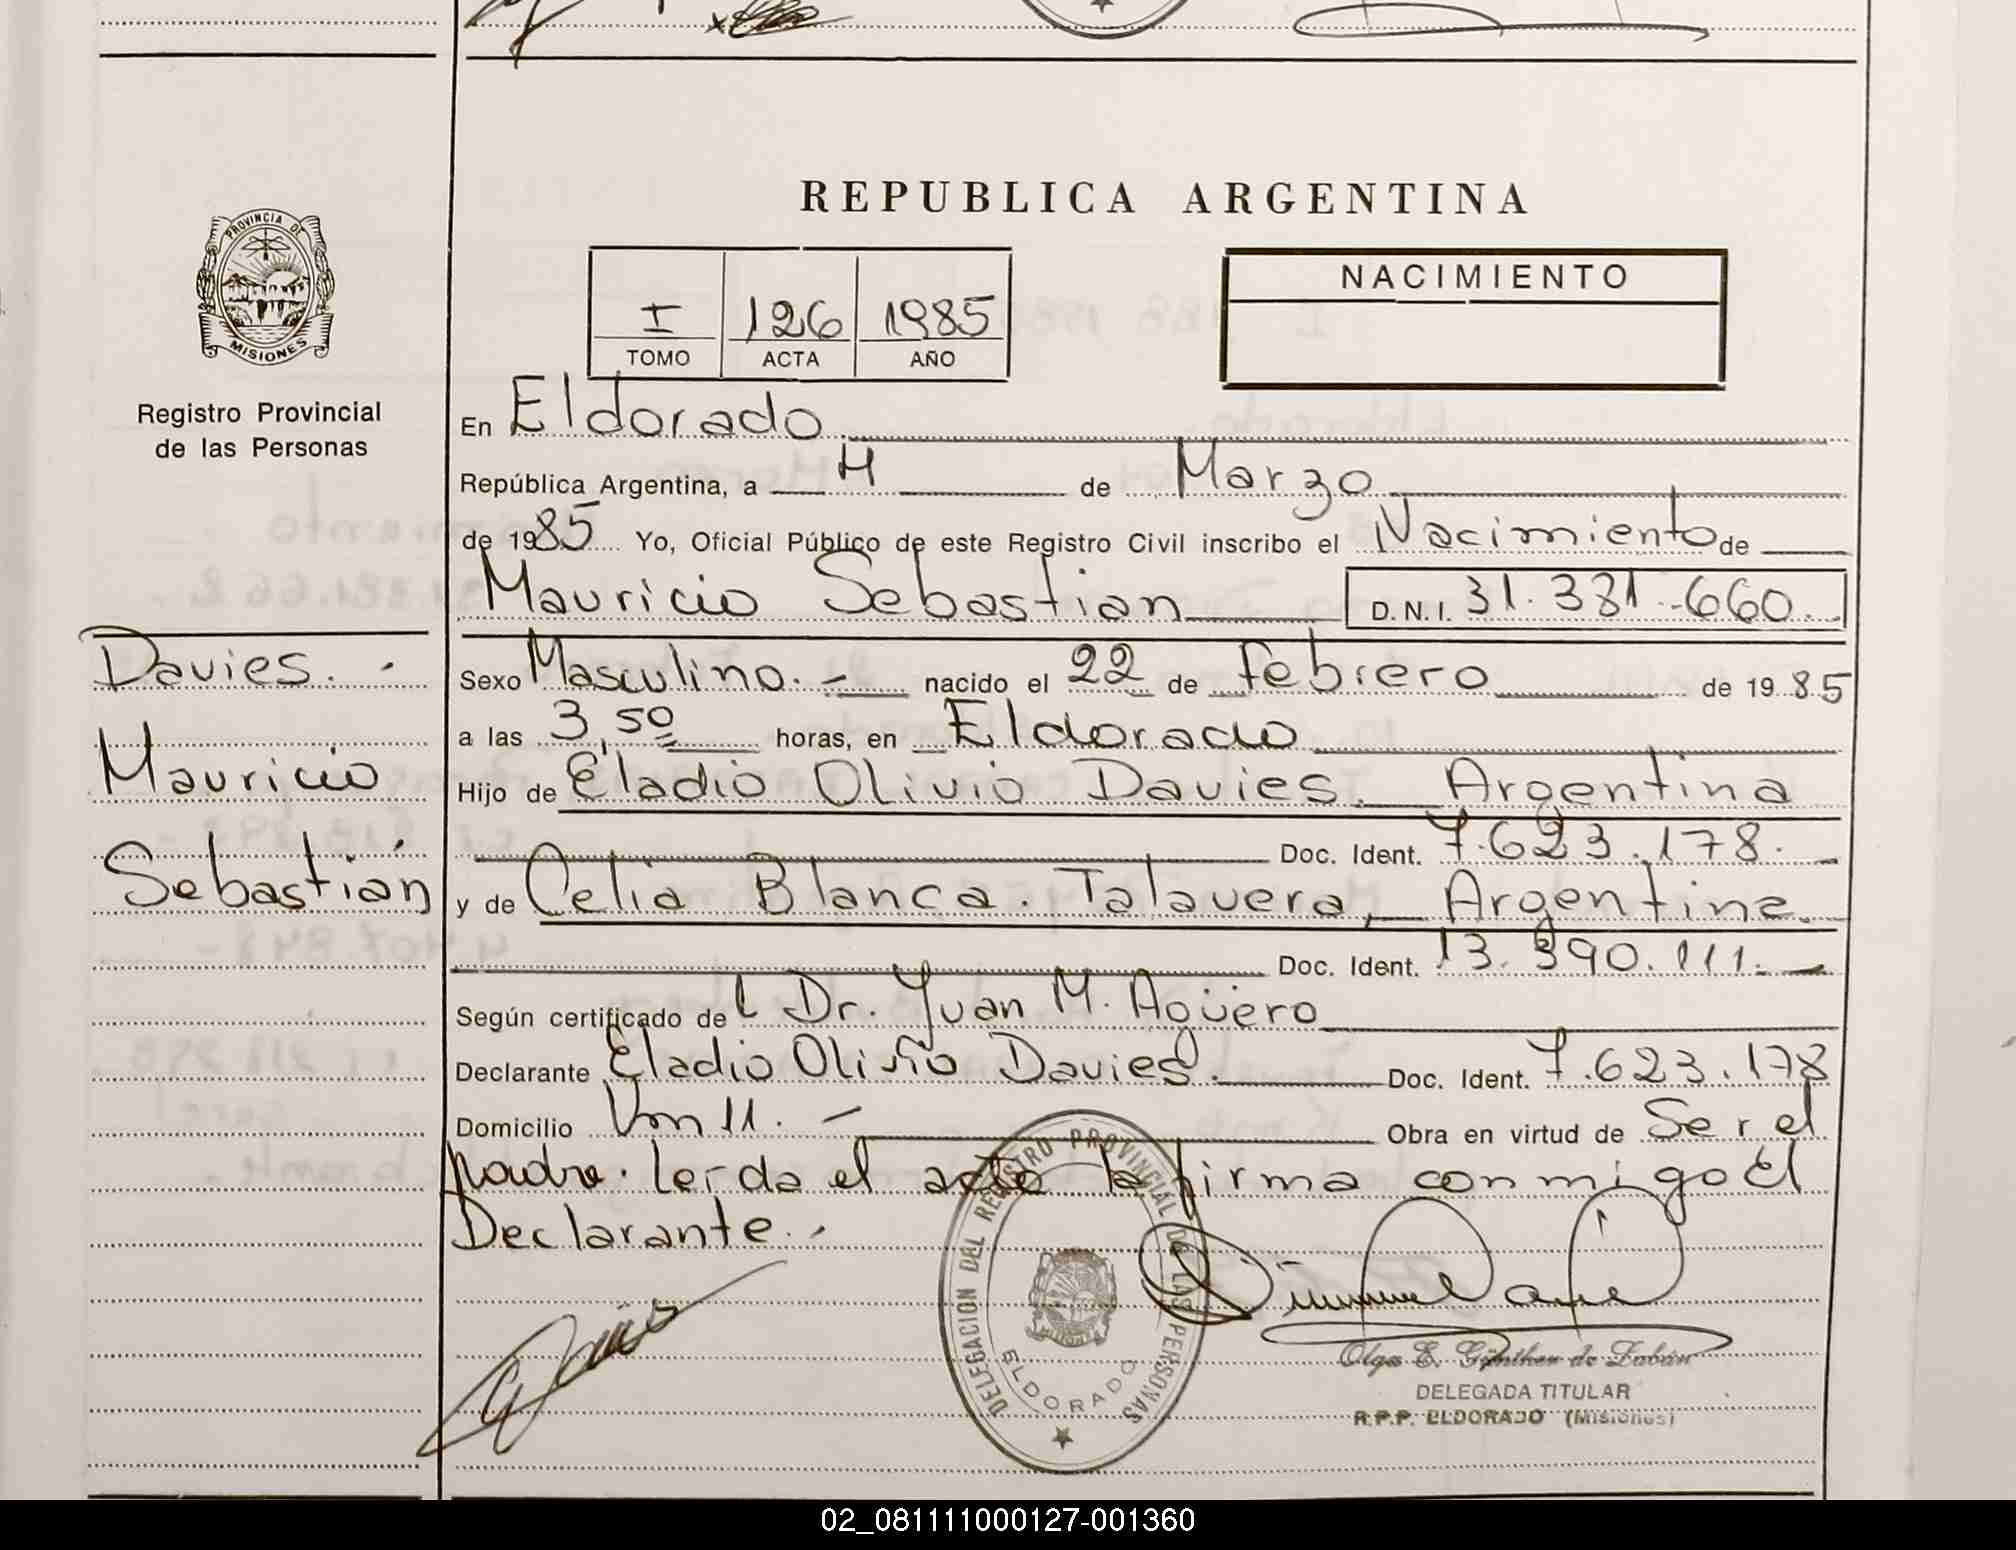 REPUBLICA ARGENTINA
PROVINCIA DE
MISIONES
Registro Provincial
de las Personas
I 126 1985
TOMO ACTA AÑO
NACIMIENTO
En Eldorado
República Argentina, a 4 de Marzo
de 1985 Yo, Oficial Público de este Registro Civil inscribo el Nacimiento de
Mauricio Sebastian D.N.I. 31.381.660.
Davies.
Mauricio
Sebastián
Sexo Masculino.- nacido el 22 de febrero de 1985
a las 3,50 horas, en Eldorado
Hijo de Eladio Olivio Davies. Argentina
Doc. Ident. 7.623.178.
y de Celia Blanca. Talavera, Argentina.
Doc. Ident. 13.390.111.
Según certificado del Dr. Juan M. Agüero
Declarante Eladio Olivio Davies. Doc. Ident. 7.623.178
Domicilio Km 11. - Obra en virtud de Ser el
padre. Leida el acta la firma conmigo El
Declarante.
DELEGACION DEL REGISTRO PROVINCIAL DE LAS PERSONAS
ELDORADO
Olga E. Günther de Zabán
DELEGADA TITULAR
R.P.P. ELDORADO (Misiones)
02_081111000127-001360